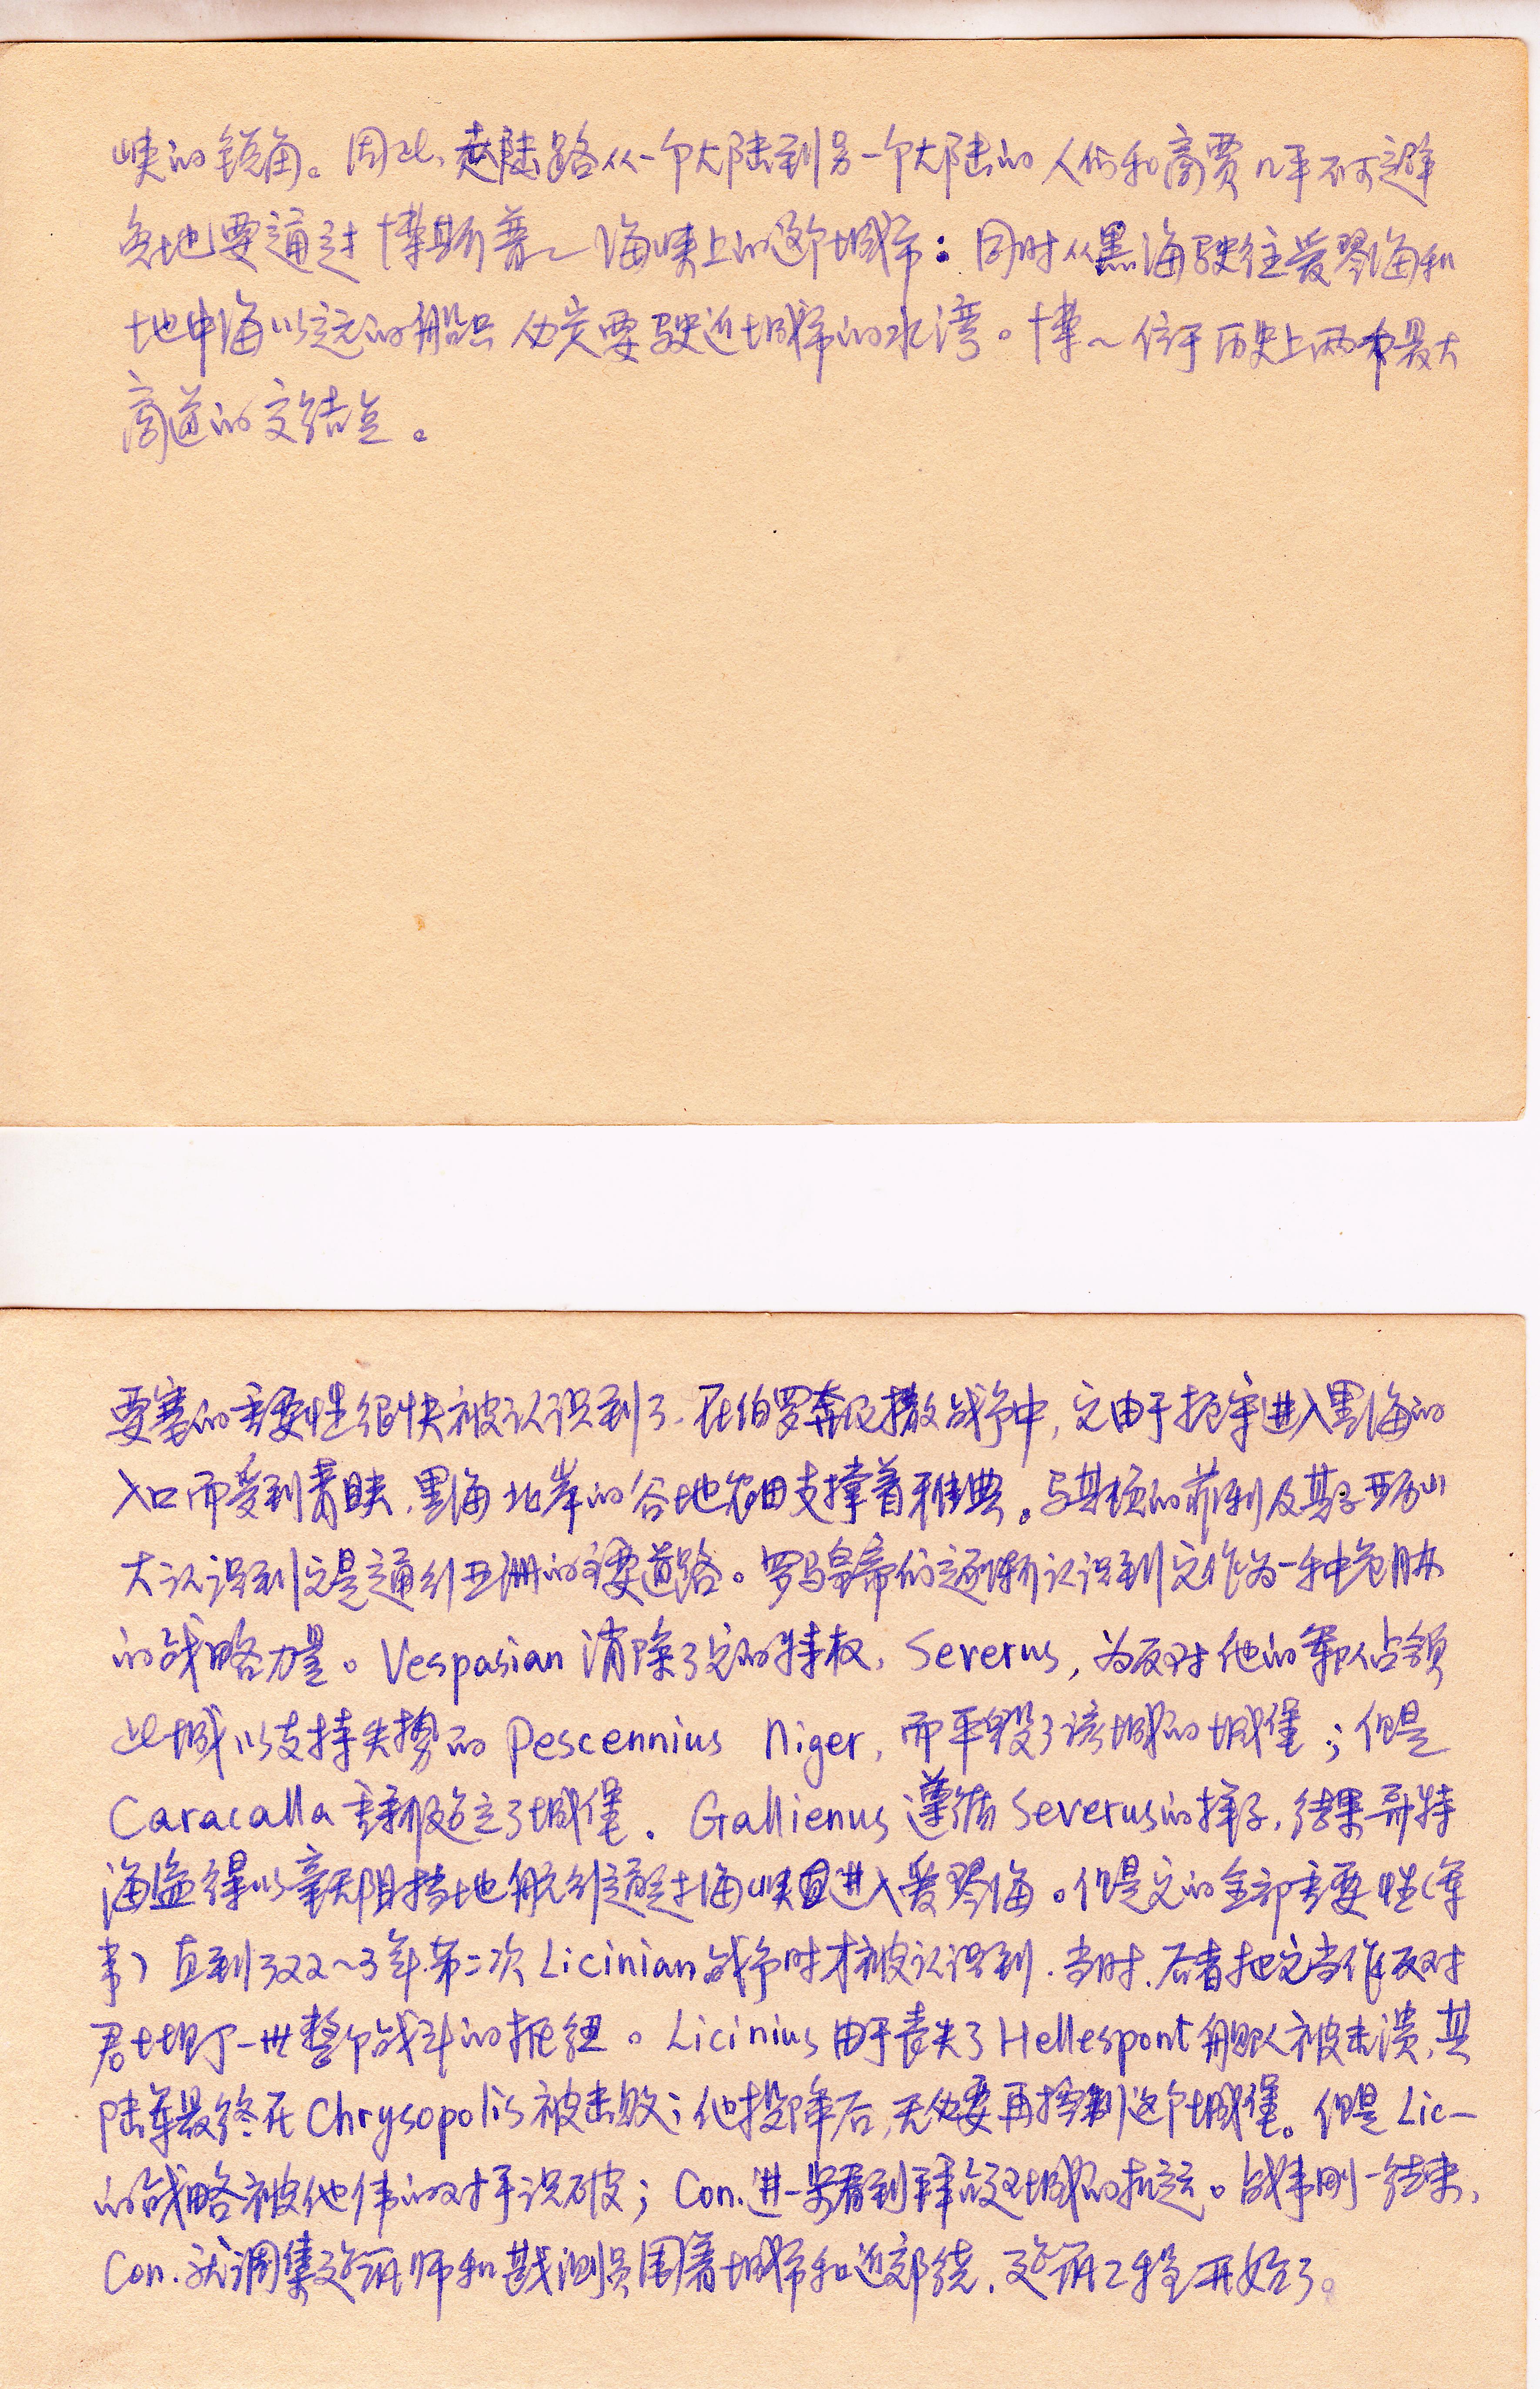 峡的锐角。因此，走陆路从一个大陆到另一个大陆的人们和商贾几乎不可避
免地要通过博斯普~海峡上的这个城市：同时从黑海驶往爱琴海和
地中海以远的船只必定要驶近城市的水湾。博~位于历史上两条最大
商道的交结点。
要塞的重要性很快被认识到了。在伯罗奔尼撒战争中，它由于扼守进入黑海的
入口而受到青睐，黑海北岸的谷地农田支撑着雅典。马其顿的菲利及其子亚历山
大认识到它是通到亚洲的主要道路。罗马皇帝们逐渐认识到它作为一种危胁
的战略力量。Vespasian 消除了它的特权，Severus，为反对他的军队占领
此城以支持失势的 Pescennius Niger，而平毁了该城的城堡；但是
Caracalla 重新建立了城堡。Gallienus 遵循 Severus的样子，结果哥特
海盗得以毫无阻挡地航行通过海峡且进入爱琴海。但是它的全部重要性（军
事）直到322~3年第二次 Licinian 战争时才被认识到．当时，后者把它当作反对
君士坦丁一世整个战斗的扼纽。Licinius 由于丧失了 Hellespont 舰队被击溃，其
陆军最终在 Chrysopolis 被击败；他投降后，无必要再控制这个城堡。但是 Lic-
的战略被他伟的对手识破；Con.进一步看到拜~这城的命运。战事刚一结束，
Con. 就调集建筑师和勘测员围着城市和近郊绕，建筑工程开始了。